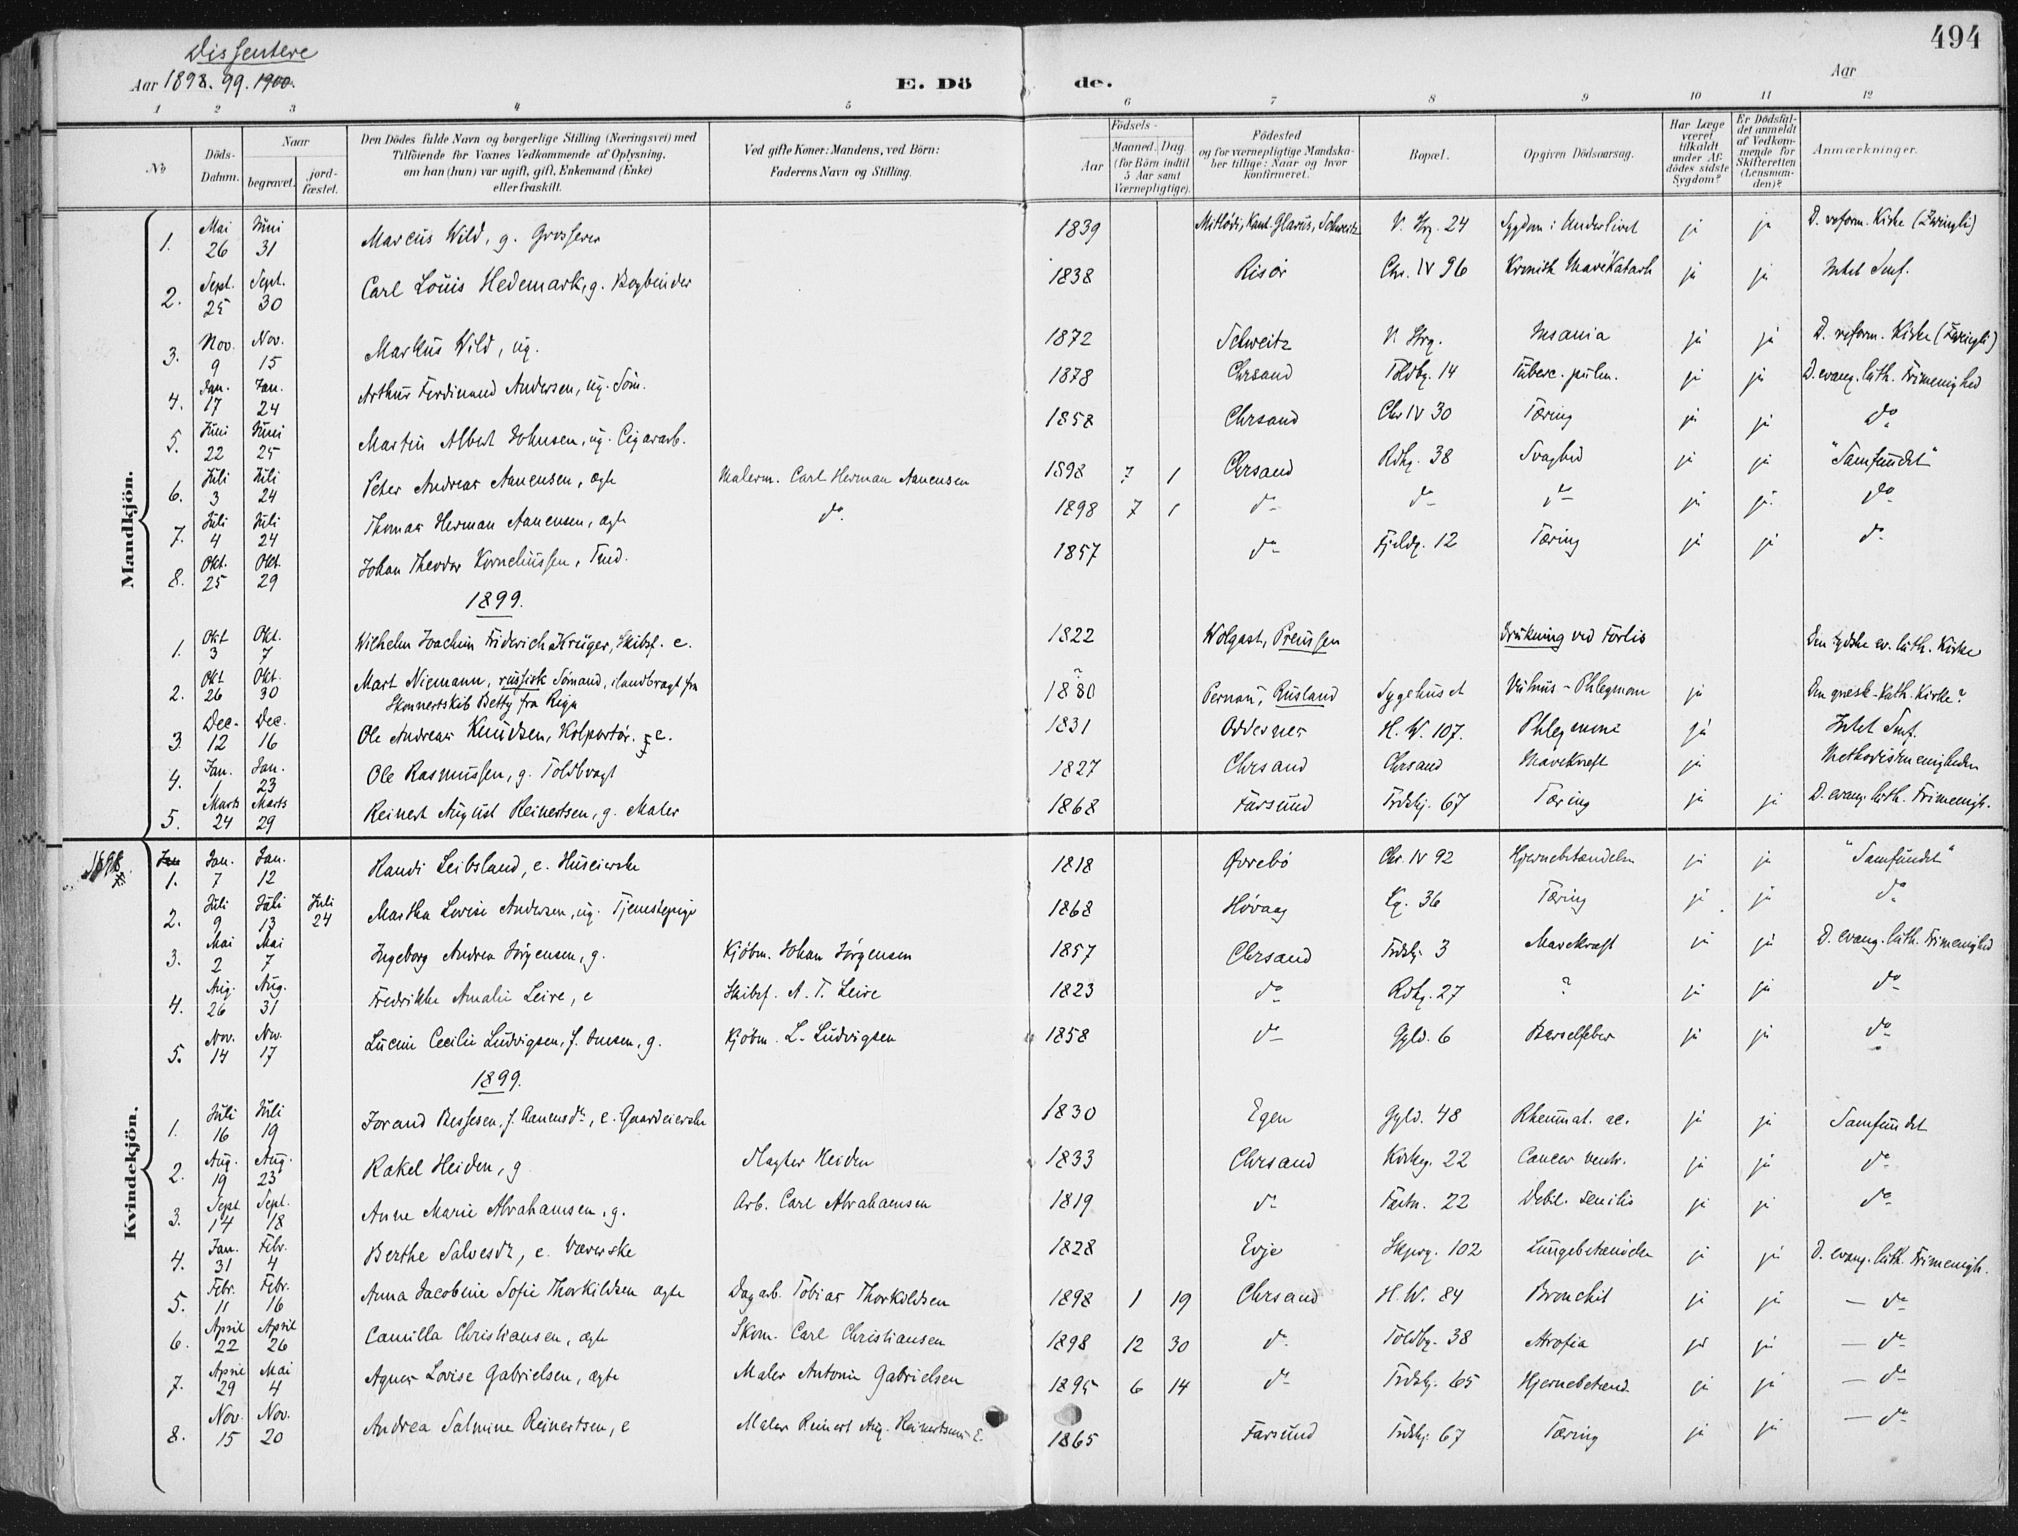 494
Dissentere
Aar 1898. 99. 1900.
E. Dö
de.
Aar
1 2 3 4 5 6 7 8 9 10 11 12
No
Döds-Datum.
Naar
begravet.
jord-fæstet.
Den Dödes fulde Navn og borgerlige Stilling (Næringsvei) med
Tilföiende for Voxnes Vedkommende af Oplysning,
om han (hun) var ugift, gift, Enkemand (Enke)
eller fraskilt.
Ved gifte Koner: Mandens, ved Börn:
Faderens Navn og Stilling.
Födsels-
Aar
Maaned. Dag.
(for Börn indtil
5 Aar samt
Værnepligtige).
Födested
og for værnepligtige Mandska-
ber tillige: Naar og hvor
konfirmeret.
Bopæl.
Opgiven Dödsaarsag.
Har Læge
været
tilkaldt
under Af-
dödes sidste
Sygdom?
Er Dödsfal-
det anmeldt
af Vedkom-
mende for
Skifteretten
(Lensman-
den)?
Anmærkninger.
Mandkjön.
1. Mai 26 Juni 31 Marcus Wild, g. Grosserer 1839 Mitlödi, Kant. Glarus, Schweitz V. Strg. 24 Sygdom i Underlivet ja ja D. reform. Kirke (Zwingli)
2. Sept. 25 Sept. 30 Carl Louis Hedemark, g. Bogbinder 1838 Risør Chr. IV 96 Kronisk Mavekatarh ja ja Intet Smf.
3. Nov. 9 Nov. 15 Markus Wild, ug. 1872 Schweitz V. Strg. Insania ja ja D. reform. Kirke (Zwingli)
4. Jan. 17 Jan. 24 Arthur Ferdinand Andersen, ug. Søm. 1878 Chrsand Toldbg. 14 Tuberc. pulm. ja ja D. evang. luth. Frimenighed
5. Juni 22 Juni 25 Martin Albert Johnsen, ug. Cigararb. 1858 Chrsand Chr IV 30 Tæring ja ja do
6. Juli 3 Juli 24 Peter Andreas Aanensen, ægte Malerm. Carl Herman Aanensen 1898 7 1 Chrsand Rdhg. 38 Svaghed ja ja "Samfundet"
7. Juli 4 Juli 24 Thomas Herman Aanensen, ægte do. 1898 7 1 do do do ja ja do
8. Okt. 25 Okt. 29 Johan Theodor Korneliussen, Tmd. 1857 do Fjeldg. 12 Tæring ja ja do
1899.
1. Okt 3 Okt. 7 Wilhelm Joachim Friderich Krüger, Skibsf. e. 1822 Wolgast, Preussen Drukning ved Forlis Den tydske ev. luth. Kirke
2. Okt 26 Okt. 30 Mart Niemann, russisk Sømand, ilandbragt fra
Skonnertskib Betty fra Riga 1880 ? Pernau, Rusland Sygehuset Vulnus - Phlegmone ja Den græsk-kath. Kirke?
3. Dec. 12 Dec. 16 Ole Andreas Knudsen, Kolportør. e. 1831 Oddernes H. W. 107. Phlegmone ja Intet Smf.
4. Jan. 1 Jan. 23 Ole Rasmussen, g. Toldbvagt 1827 Chrsand Chrsand Mavekræft ja Methodistmenigheden
5. Marts 24 Marts 29 Reinert August Reinertsen, g. Maler 1868 Farsund Frdskj. 67 Tæring ja ja D. evang. luth. Frimenigh.
Kvindekjön.
1898
1. Jan. 7 Jan. 12 Randi Leibsland, e. Huseierske 1818 Øvrebø Chr. IV 92 Hjernebetændelse ja ja "Samfundet"
2. Juli 9 Juli 13 Juli 24 Martha Lovise Andersen, ug. Tjenestepige 1868 Høvaag Kg. 36 Tæring ja ja do
3. Mai 2 Mai 7 Ingeborg Andrea Jørgensen, g. Kjøbm. Johan Jørgensen 1857 Chrsand Frdskj. 3 Mavekræft ja ja D. evang. luth. Frimenighed
4. Aug. 26 Aug. 31 Fredrikke Amalie Leire, e Skibsf. A. T. Leire 1823 do Rdhg. 27 ? ja ja do
5. Nov. 14 Nov. 17 Lucine Cecilie Ludvigsen, f. Omsen, g. Kjøbm. L. Ludvigsen 1858 do Gyld. 6 Barselfeber ja ja do
1899.
1. Juli 16 Juli 19 Jorand Bessesen, f. Aanensdr., e. Gaardeierske 1830 Egen Gyld. 48 Rheumat. ac. ja ja Samfundet
2. Aug. 19 Aug. 23 Rakel Heiden, g Slagter Heiden 1833 Chrsand Kirkeg. 22 Cancer ventr. ja ja do
3. Sept 14 Sept. 18 Anne Marie Abrahamsen, g. Arb. Carl Abrahamsen 1819 do Fæstn. 22 Debil. senilis ja ja do
4. Jan. 31 Febr. 4 Berthe Salvesdr, e. Væverske 1828 Evje Skprg. 102 Lungebetændelse ja ja D. evang. luth. Frimenigh.
5. Febr. 11 Febr. 16 Anna Jacobine Sofie Thorkildsen ægte Dagarb. Tobias Thorkildsen 1898 1 19 Chrsand H. W. 84 Bronchit ja ja — do
6. April 22 April 26 Camilla Christiansen, ægte Skom. Carl Christiansen 1898 12 30 do Toldbg. 38 Atrofia ja ja — do
7. April 29 Mai 4 Agnes Lovise Gabrielsen, ægte Maler Antonie Gabrielsen 1895 6 14 do Frdskj. 65 Hjernebetænd. ja ja — do
8. Nov. 15 Nov. 20 Andrea Salmine Reinertsen, e Maler Reinert Aug. Reinertsens E. 1865 Farsund Frdskj. 67 Tæring ja ja — do